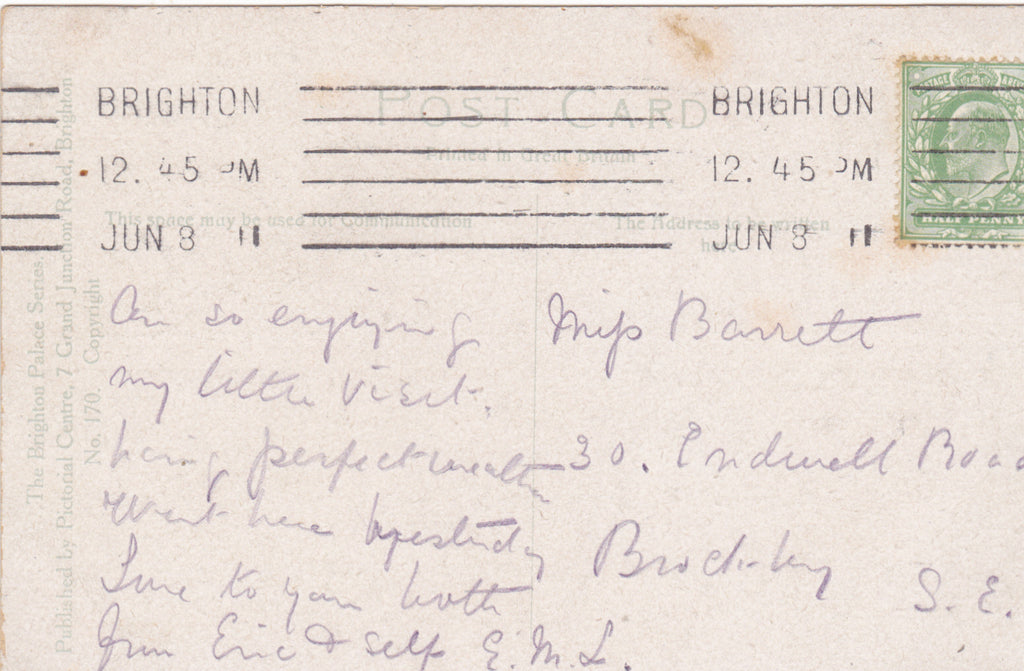 BRIGHTON
12. 45 PM
JUN 8 11
BRIGHTON
12. 45 PM
JUN 8 11
POST CARD
Printed in Great Britain
This space may be used for Communication
The Address to be written
here
HALFPENNY
The Brighton Palace Series.
Published by Pictorial Centre, 7 Grand Junction Road, Brighton
No. 170. Copyright
Am so enjoying
my little visit.
having perfect weather
Went here yesterday
Love to you both
from Eric & self E.M.L.
Miss Barrett
30. Endwell Road
Brockley
S.E.